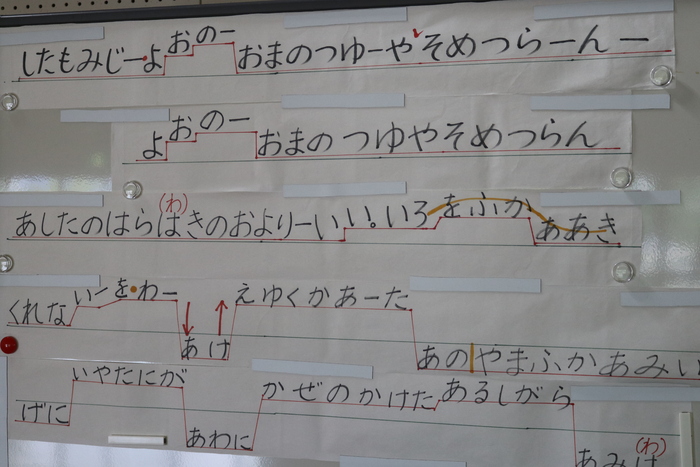 したもみじーよおのーおまのつゆーやそめつらーんー
よおのーおまのつゆやそめつらん
(わ)
あしたのはらはきのおよりーいいいろをふかああき
くれないーをわーあけえゆくかあーたあのやまふかあみい
げにいやたにがあわにかぜのかけたあるしがら
(わ)
あみは